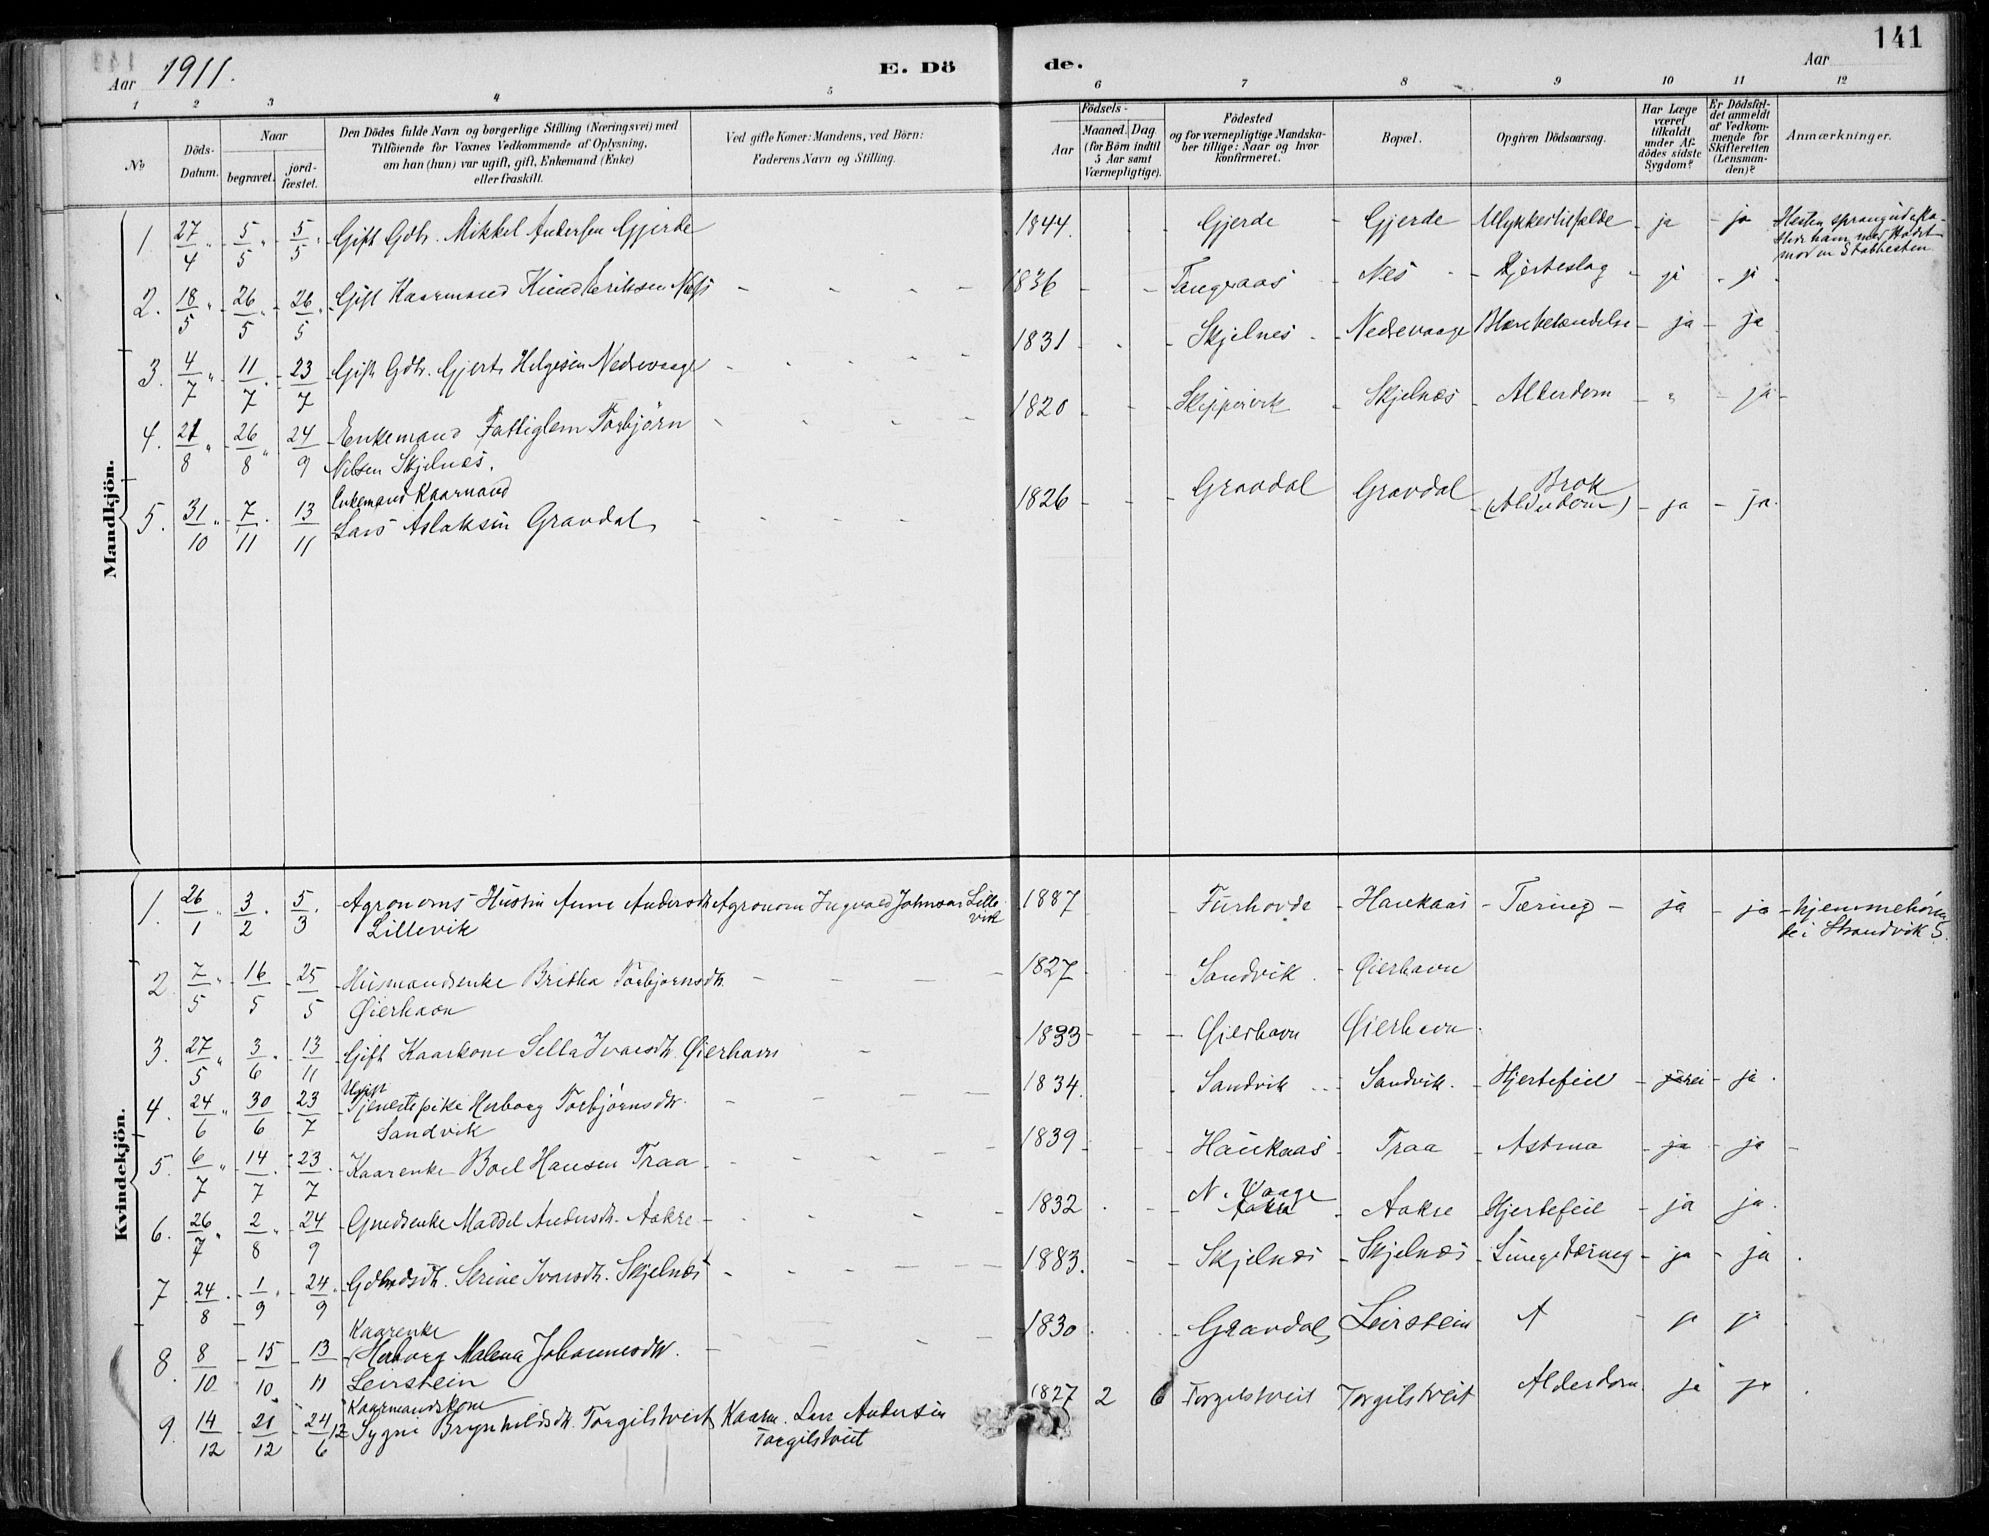 141
Aar 1911.
E. Döde.
Aar
1 2 3 4 5 6 7 8 9 10 11 12
No
Döds-Datum.
Naar
begravet.
jordfæstet.
Den Dödes fulde Navn og borgerlige Stilling (Næringsvei) med
Tilföiende for Voxnes Vedkommende af Oplysning,
om han (hun) var ugift, gift, Enkemand (Enke)
eller fraskilt.
Ved gifte Koner: Mandens, ved Börn:
Faderens Navn og Stilling.
Födsels-
Aar
Maaned. Dag
(for Börn indtil
5 Aar samt
Værnepligtige).
Födested
og for værnepligtige Mandskaber tillige: Naar og hvor
konfirmeret.
Bopæl.
Opgiven Dödsaarsag.
Har Læge
været
tilkaldt
under Afdödes sidste
Sygdom?
Er Dödsfaldet anmeldt
af Vedkommende for
Skifteretten
(Lensmanden)?
Anmærkninger.
Mandkjön.
1. 27/4 5/5 5/5 Gift Gdbr. Mikkel Andersen Gjerde 1844. Gjerde Gjerde Ulykkestilfælde ja ja
mod en Stabbesten
2. 18/5 26/5 26/5 Gift Kaarmand Eriksen Næs 1836 Tangeraas Næs Hjerteslag ja ja
3. 4/7 11/7 23/7 Gift Gdbr. Gjert Helgesen Nedrevaage 1831 Skjelnes Nedrevaage ja ja
4. 21/8 26/8 24/9 Enkemand Fattiglem Torbjörn
Nilsen Skjelnæs. 1820 Skjelnæs Alderdom " ja
5. 31/10 7/11 13/11 Enkemand Kaarmand
Lars Aslaksen Gravdal 1826 Gravdal Gravdal Brok
(Alderdom) ja ja.
Kvindekjön.
1. 26/1 3/2 5/3 Agronoms Hustru Anne Andersdtr. Agronom Ingvald Johnsen Lillevik
Lillevik 1887 Haukaas Tæring ja ja hjemmehörende i Strandvik S.
2 7/5 16/5 25/5 Husmandsenke Britha Torbjørnsdtr.
Øierhavn 1827 Sandvik Øierhavn
3. 27/5 3/6 13/11 Gift Kaarkone Sella Ivarsdtr. Øierhavn 1833 Øierhavn Øierhavn
4. 24/6 30/6 23/7 Ugift
Tjenestepike Herborg Torbjörnsdtr.
Sandvik 1834. Sandvik Sandvik. Hjertefeil nei ja
5. 6/7 14/7 23/7 Kaarenke Boel Hansen Traa 1839 Haukaas Traa Astma ja ja
6. 26/7 2/8 24/9 Maddel Andersdtr. Aakre 1832 N. Vaage Aakre Hjertefeil ja ja.
7 24/8 1/9 24/9 Ivarsdtr. Skjelnæs 1883. Skjelnæs Skjelnæs Lungetæring ja ja
8. 8/10 15/10 13/11 Kaarenke
Herborg Malena Johannesdtr.
Leirstein 1830 Gravdal Leirstein A ja ja
9. 14/12 21/12 24/6 12 Kaarmandskone
Sygni Brynhildsdtr. Torgilstveit Kaarm. Lars Andersen
Torgilstveit 1827 2 6 Torgilstveit Torgilstveit Alderdom ja ja